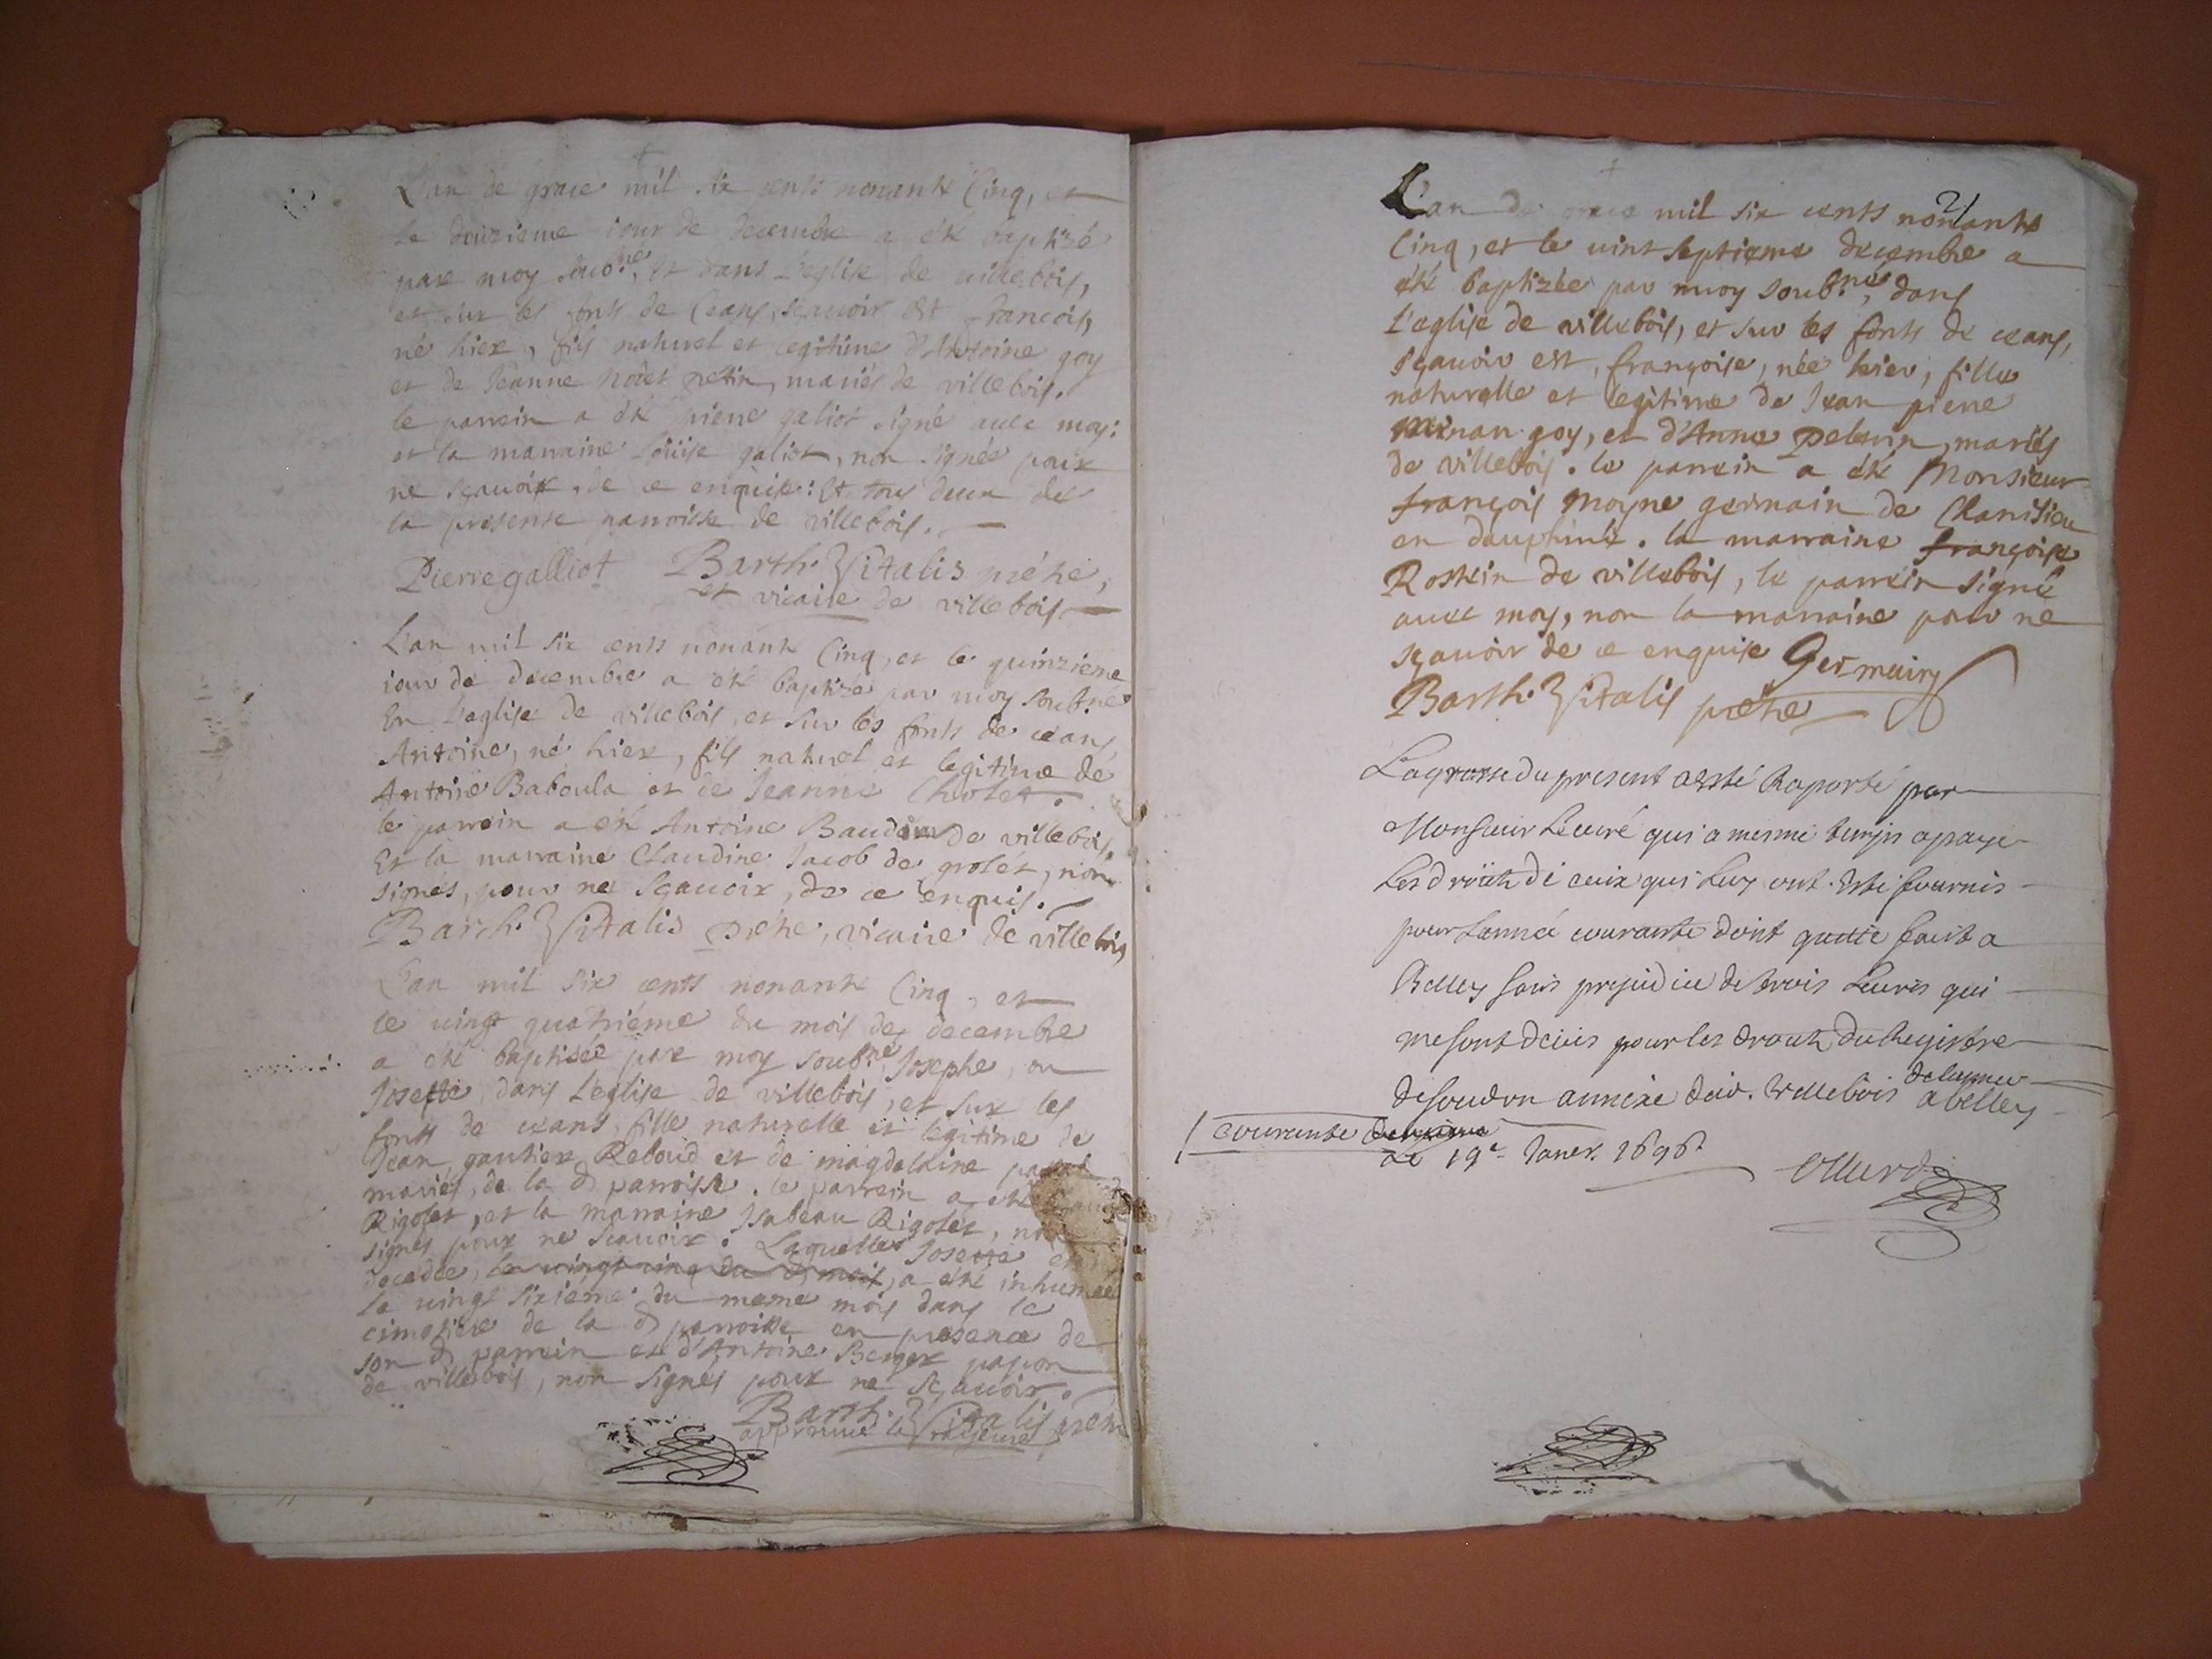 L'an de grace mil six cents nonante Cinq, et
le douzieme iour de decembre a été baptizé
par moy soub.né, Et dans L'eglise de villebois,
et sur les fonts de Ceans, sçauoir est francois,
né hier, fils naturel et legitime d'Antoine goy
et de Jeanne nodet petin, mariés de villebois.
le parrein a été pierre galiot signé auec moy:
et la marraine Loüise galiot, non signée pour
ne sçauoir, de ce enquise: Et tous deux de
la presente parroisse de villebois.
Pierre galliot Barth. Vitalis prétre,
et vicaire de villebois
L'an mil six cents nonante Cinq, et le quinzieme
iour de decembre a été baptizé par moy soub.né
En L'eglise de villebois, et sur les fonts de ceans,
Antoine, né hier, fils naturel et legitime de
Antoine Baboula et de Jeanne Cholet.
le parrein a été Antoine Baudin de villebois,
Et la marraine Claudine Jacob de grolét, non
signés, pour ne sçauoir, de ce enquis.
Barth. Vitalis prétre, vicaire de villebois
L'an mil six cents nonante Cinq, et
le vingt quatriéme du mois de decembre
a été baptisée par moy soub.né Josephe, ou
Josette, dans L'eglise de villebois, et sur les
fonts de ceans, fille naturelle et legitime de
Jean gautier Reboud et de magdelaine
mariés, de la d parroisse. le parrein a été
Rigolet, et la marraine Isabeau Rigolet, non
signés pour ne sçauoir. Laquelle Josette
decedée, le vingt cinq du d mois, a été inhumée
le vingt sixiéme du meme mois dans le
cimetiere de la d parroisse en presence de
son d parrein et d'Antoine Berger papon
de villebois, non signés pour ne sçauoir.
Barth. Vitalis prétre
approuué la rayeure
21
L'an de grace mil six cents nonante
Cinq, et le vint septieme decembre a
été baptizée par moy soub.né, dans
L'eglise de villebois, et sur les fonts de ceans,
sçauoir est, françoise, née hier, fille
naturelle et legitime de Jean pierre
minan goy, et d'Anne pelurin, mariés
de villebois. le parrein a été Monsieur
françois Moyne germain de Chanisieu
en dauphiné. la marraine françoise
Rostein de villebois, le parrein signé
auec moy, non la marraine pour ne
sçauoir de ce enquise Germain
Barth. Vitalis prétre
La grosse du present a esté Raporté par
Monsieur Lecuré qui a mesme temps a payé
Les droits de ceux qui Luy ont esté fournis
pour Lannée courante dont quitte fait a
Belley sans prejudice de trois Liures qui
me sont deües pour les droits du Registre
de soudon annexe dud. Villebois de lannee
courante a belley
Le 19e Janer. 1696.